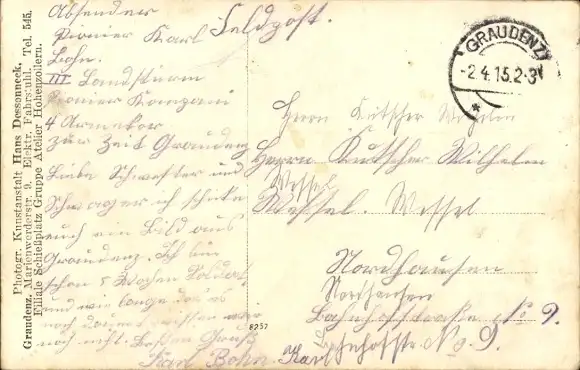 Photogr. Kunstanstalt Hans Dessanneck,
Graudenz, Marienwerderstr. 9, Elektr. Fahrstuhl. Tel. 545.
Filiale Schießplatz Gruppe Atelier Hohenzollern.
Absender
Pionier Karl
Bohn.
III Landsturm
Pionier Kompani
4 Armekor
zur Zeit Graudenz
Liebe Schwester und
Schwager ich schicke
euch ein Bild aus
Graudenz. Ich bin
schon 5 Wochen Soldat
und wie lange das es
noch dauert wissen wir
noch nicht. Besten Gruß
Karl Bohn. Karl
Feldpost.
GRAUDENZ
-2.4.15.2-3
*
Herrn Kutscher Wilhelm
Herrn Kutscher Wilhelm
Wessel
Wessel. Wessel
Nordhausen
Nordhausen
Bahnhofstraße No 9.
Bahnhofstr. No. 9.
8257